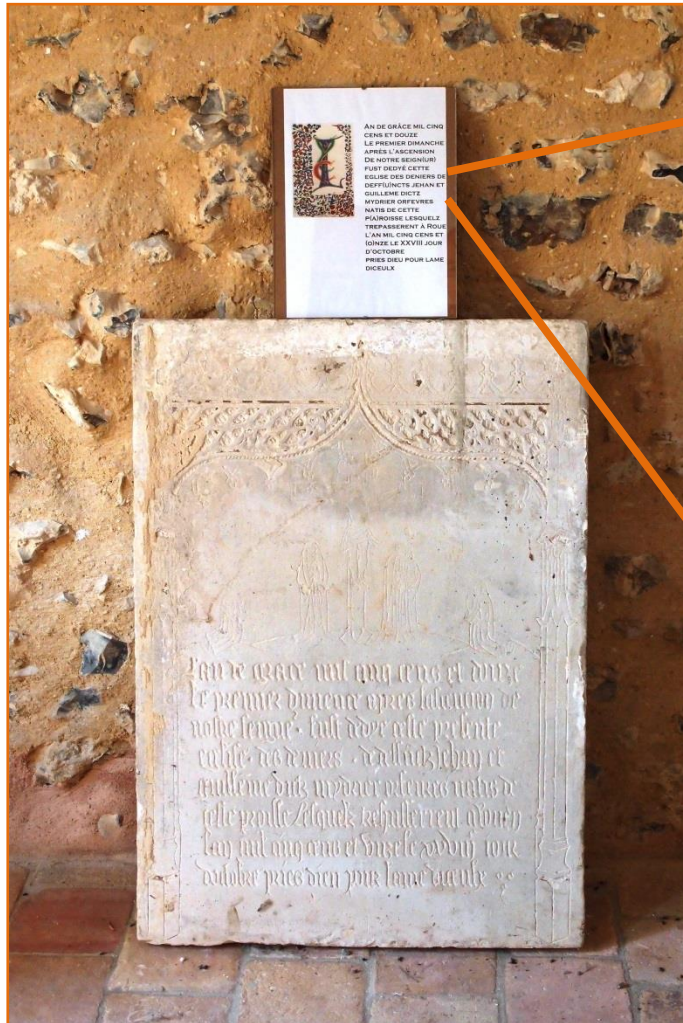 AN DE GRÂCE MIL CINQ
CENS ET DOUZE
LE PREMIER DIMANCHE
APRÈS L'ASCENSION
DE NOTRE SEIGN(UR)
FUST DEDYÉ CETTE
EGLISE DES DENIERS DE
DEFF(U)NCTS JEHAN ET
GUILLEME DICTZ
MYDRIER ORFEVRES
NATIS DE CETTE
P(A)ROISSE LESQUELZ
TREPASSERENT À ROUE
L'AN MIL CINQ CENS ET
(O)NZE LE XXVIII JOUR
D'OCTOBRE
PRIES DIEU POUR LAME
DICEULX
Lan de grace mil cinq cens et douze
le premier dimence apres
nostre fust dedye ceste presente
eglise des deniers jehan et
guilleme dictz mydrier orfevres natis de
ceste lesquelz
lan mil cinq cens et unze le xxviii jour
doctobre pries dieu pour lame diceulx